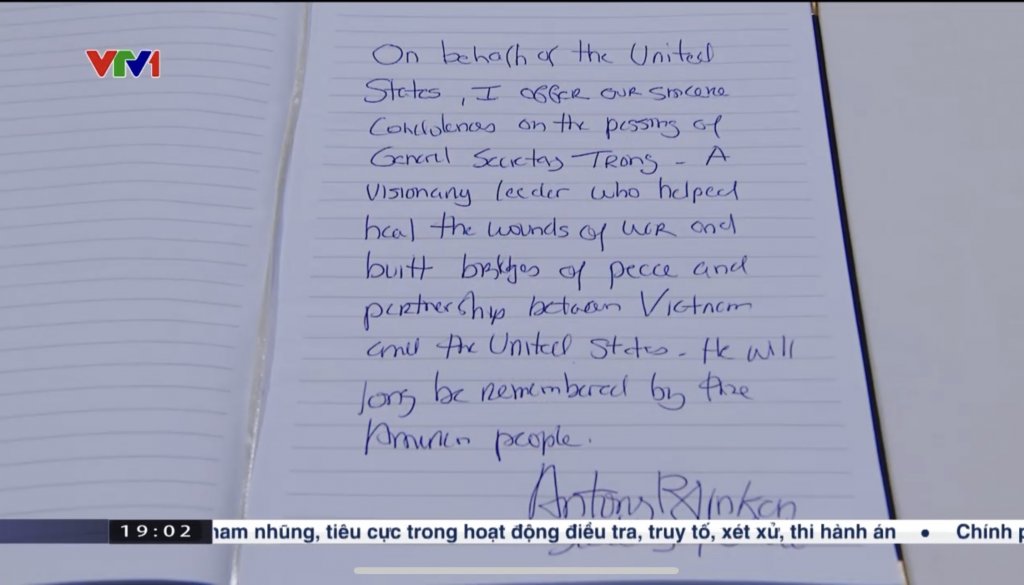 VTV1
On behalf of the United
States, I offer our sincere
Condolences on the passing of
General Secretary Trong - A
visionary leader who helped
heal the wounds of war and
built bridges of peace and
partnership between Vietnam
and the United States. He will
long be remembered by the
American people.
Antony Blinken
19:02 ham nhũng, tiêu cực trong hoạt động điều tra, truy tố, xét xử, thi hành án • Chính